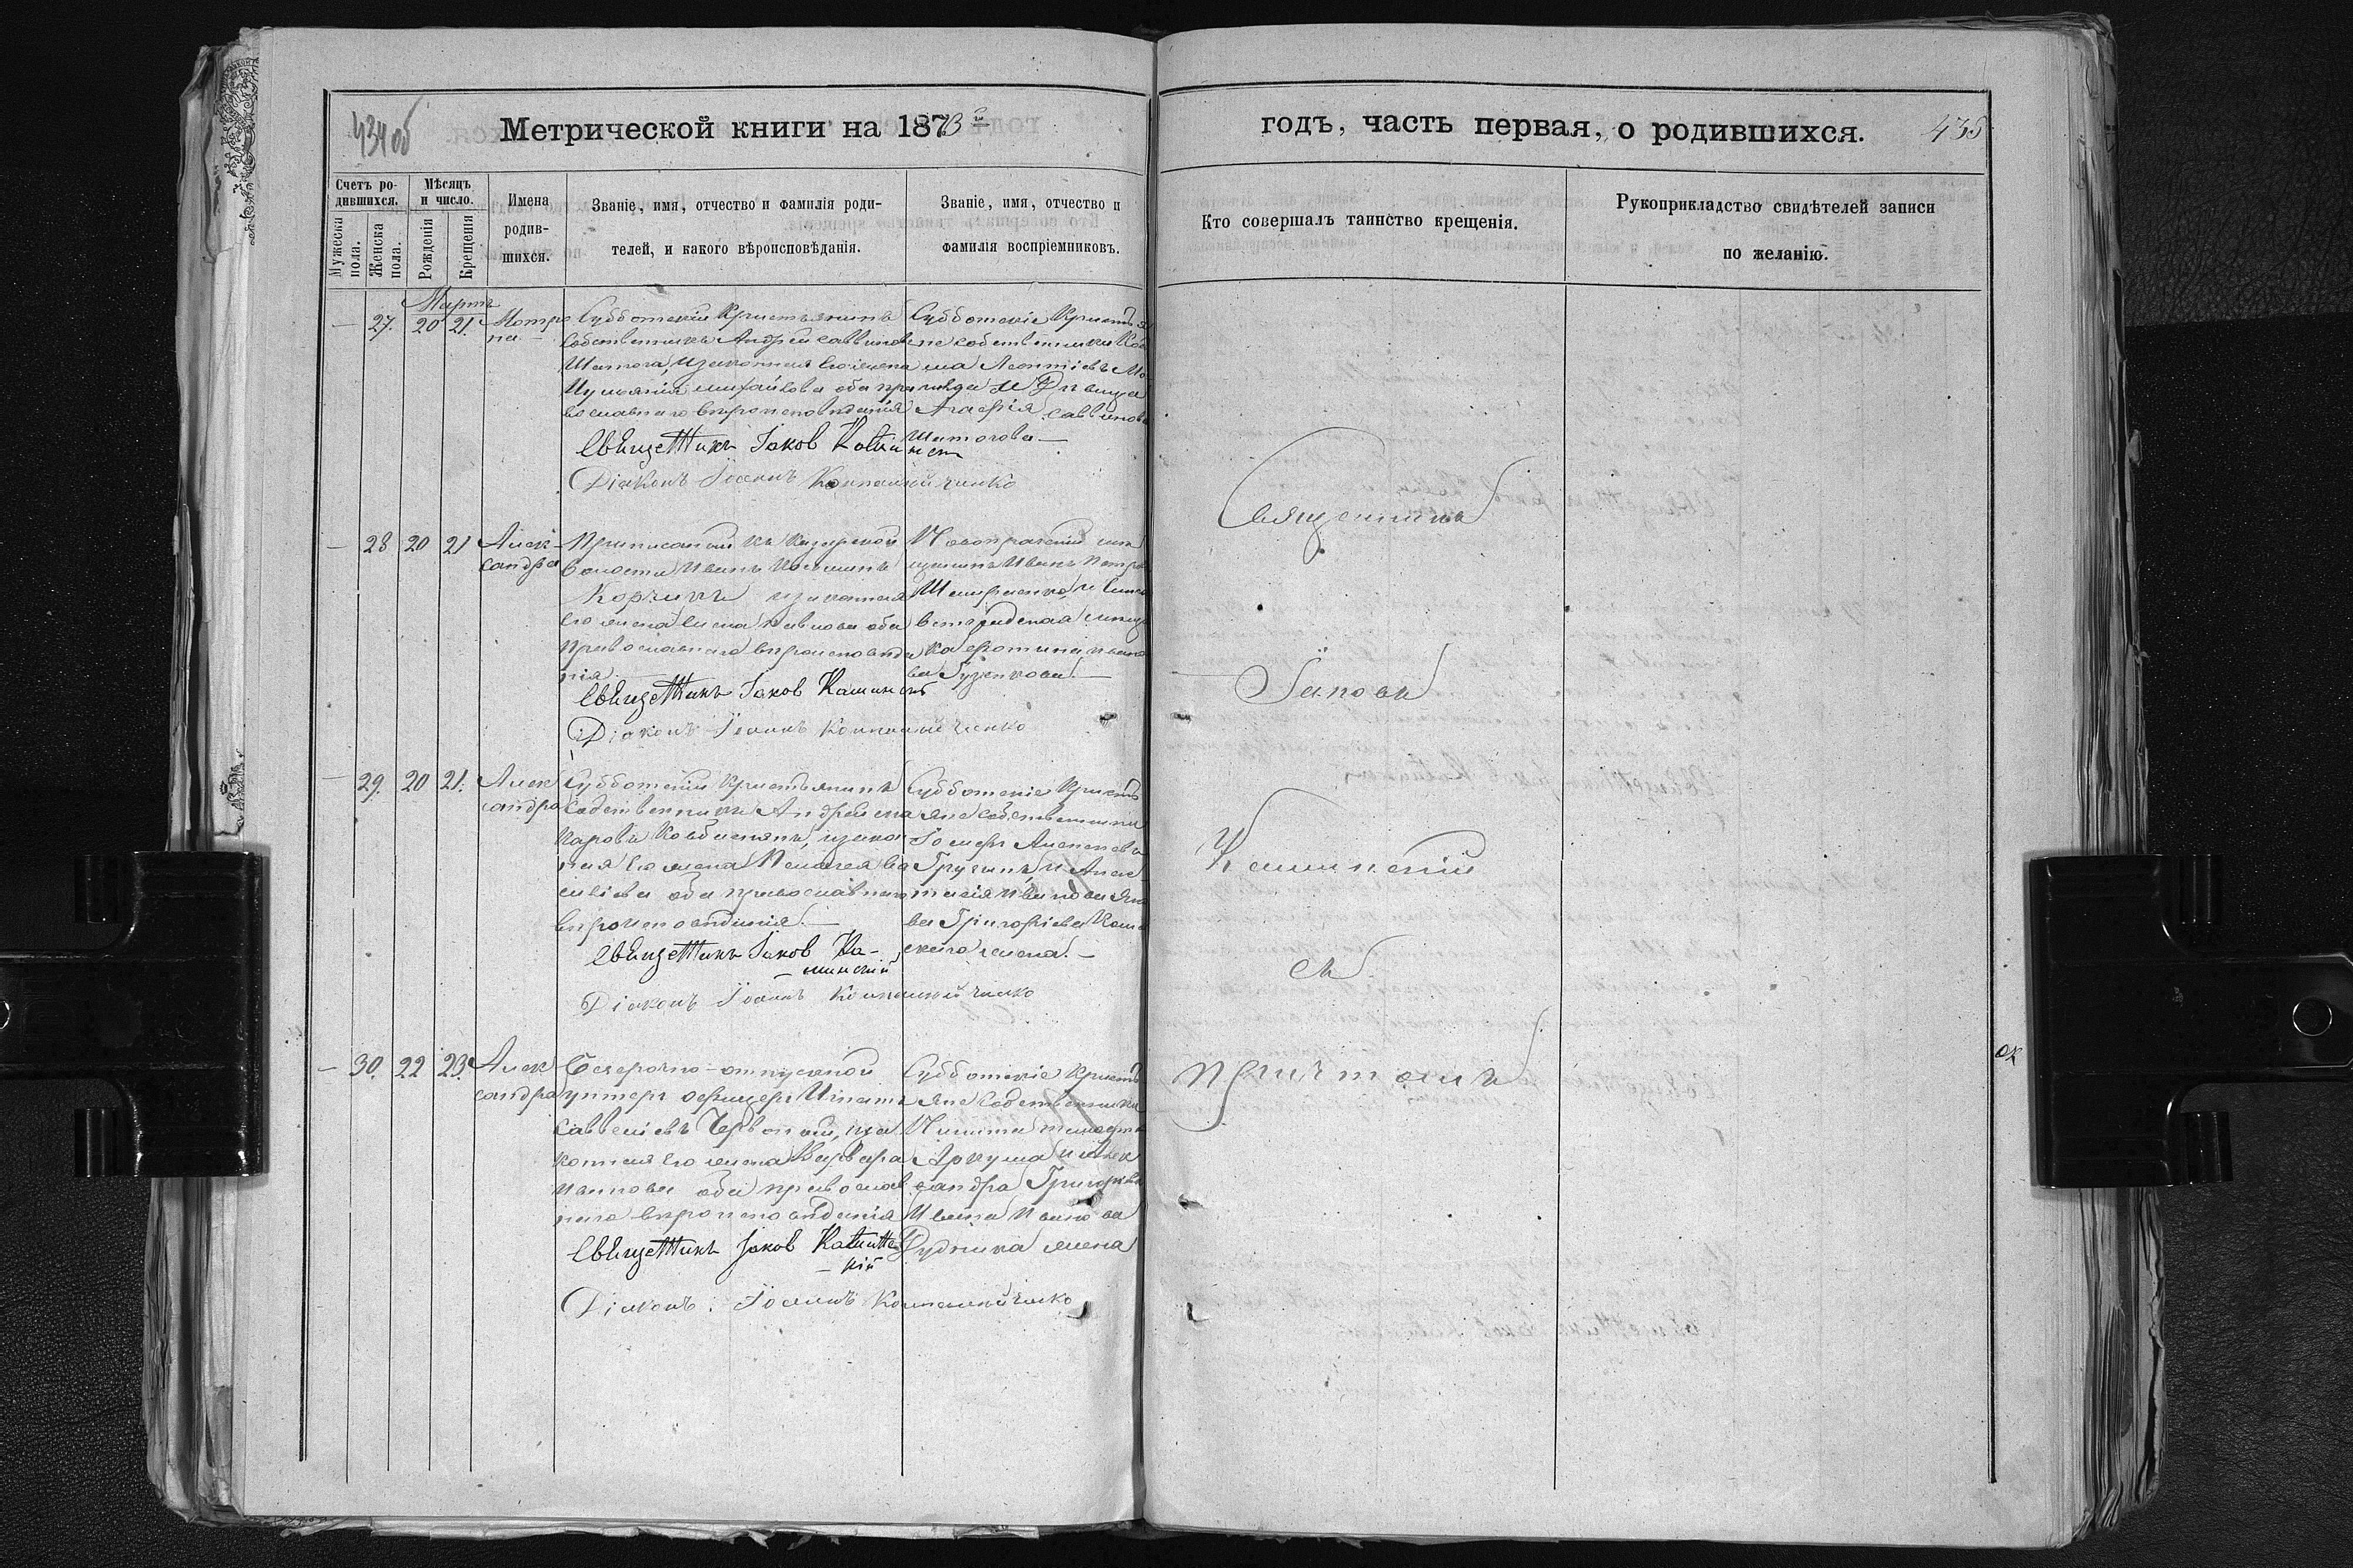 434 об
Метрической книги на 1873й
годъ, часть первая, о родившихся.
435
Счетъ родившихся.
Мужеска пола.
Женска пола.
Мѣсяцъ и число.
Рожденія
Крещенія
Имена родившихся.
Званіе, имя, отчество и фамилія родителей, и какого вѣроисповѣданія.
Званіе, имя, отчество и фамилія воспріемниковъ.
Кто совершалъ таинство крещенія.
Рукоприкладство свидѣтелей записи по желанію.
Мартъ
— 27. 20 21. Мотро
на. —
Субботскій Крестьянинъ
Собственникъ Андрей Саввиновъ
Шатога, и законная его жена
михайлова оба пра
вославнаго вѣроисповѣданія
Свѣщетникъ Іаков Камин
ски
Діаконъ Іоаннъ Компанійченко
Субботскіе Крестья
не собственники
ма Леонтіевъ
и Дѣвица
Агафія Саввинова
Шатогова —
— 28 20 21 Алек-
сандра
Приписанный къ
волости Иванъ
Коржикъ и законная
его жена Елена Павлова оба
православнаго вѣроисповѣда
нія. —
Свѣщетникъ Іаков Каминскъ
Діаконъ Іоаннъ Компанійченко
Новопражскій мѣ
щанинъ Иванъ Петро
и Елиса
ветградская мѣщан
ка Фотина Ивано
ва Гуженкова. —
— 29. 20 21. Алек
сандра
Субботскій Крестьянинъ
Собственникъ Андрей Ма
каровъ и закон
ная его жена Пелагея Ва
силіева оба православнаго
вѣроисповѣданія. —
Свѣщетникъ Іаков Ка-
минскій
Діаконъ Іоаннъ Компанійченко
Субботскіе Кресть
яне Собственники
Алексѣевъ
и Анас
тасія Иванова Яко
ва Григоріева
скаго жена. —
— 30. 22 23. Алек
сандра
Безсрочно-отпускной
унтеръ офицеръ Игнатъ
Савеліевъ Червоный, и за
конная его жена Варвара
Иванова оба православ
наго вѣроисповѣданія
Свѣщетникъ Іаков Каминс
кій
Діаконъ Іоаннъ Компанійченко
Субботскіе Кресть
яне Собственники
Никита Тимофѣ
Аркуша и Алек
сандра Григорьева
Ивана Иванова
Рудника жена
Священникъ
Іаковъ
Каминскій
съ
причтомъ